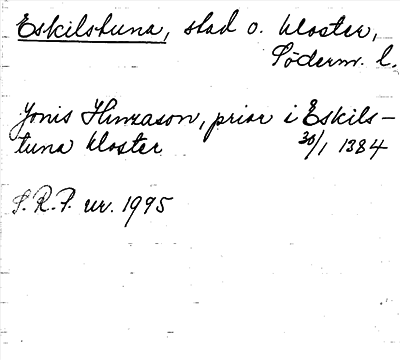 Eskilstuna, stad o. kloster,
Söderm. l.
Jonis Hinzason, prior i Eskils-
tuna kloster 30/1 1384
S.R.P. nr. 1995